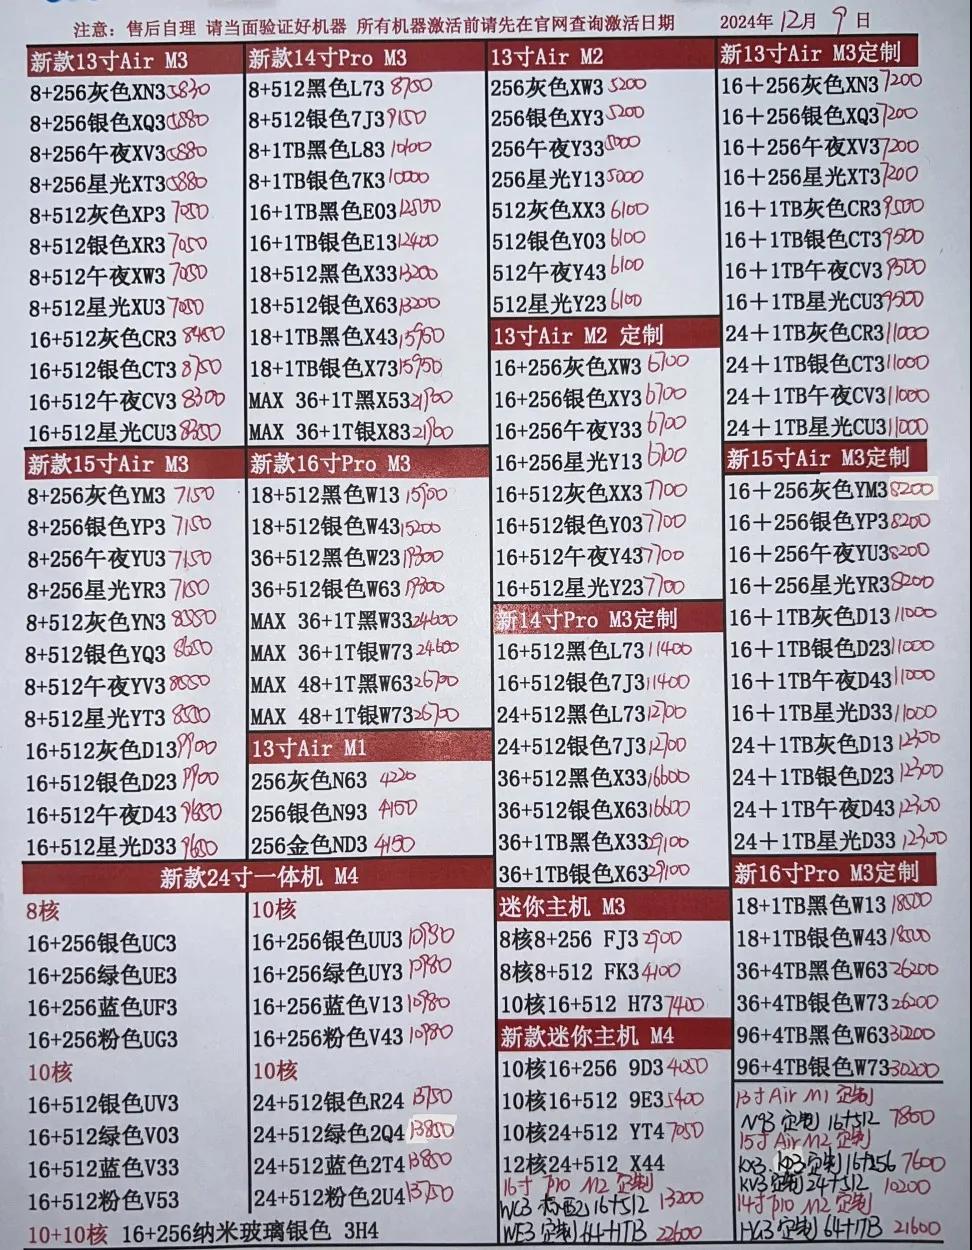 注意：售后自理 请当面验证好机器 所有机器激活前请先在官网查询激活日期 2024年12月9日
新款13寸Air M3
8+256灰色XN3 5830
8+256银色XQ3 5880
8+256午夜XV3 5880
8+256星光XT3 5880
8+512灰色XP3 7050
8+512银色XR3 7050
8+512午夜XW3 7050
8+512星光XU3 7050
16+512灰色CR3 8450
16+512银色CT3 8750
16+512午夜CV3 8300
16+512星光CU3 8350
新款15寸Air M3
8+256灰色YM3 7150
8+256银色YP3 7150
8+256午夜YU3 7150
8+256星光YR3 7150
8+512灰色YN3 8550
8+512银色YQ3 8650
8+512午夜YV3 8550
8+512星光YT3 8550
16+512灰色D13 9900
16+512银色D23 9900
16+512午夜D43 9650
16+512星光D33 9650
新款14寸Pro M3
8+512黑色L73 8750
8+512银色7J3 9150
8+1TB黑色L83 10100
8+1TB银色7K3 10000
16+1TB黑色E03 12500
16+1TB银色E13 12400
18+512黑色X33 13200
18+512银色X63 13200
18+1TB黑色X43 15950
18+1TB银色X73 15950
MAX 36+1T黑X53 21900
MAX 36+1T银X83 21900
新款16寸Pro M3
18+512黑色W13 15900
18+512银色W43 15200
36+512黑色W23 19300
36+512银色W63 19300
MAX 36+1T黑W33 24600
MAX 36+1T银W73 24600
MAX 48+1T黑W63 26700
MAX 48+1T银W73 26700
13寸Air M1
256灰色N63 4220
256银色N93 4150
256金色ND3 4150
新款24寸一体机 M4
8核
16+256银色UC3
16+256绿色UE3
16+256蓝色UF3
16+256粉色UG3
10核
16+512银色UV3
16+512绿色V03
16+512蓝色V33
16+512粉色V53
10+10核 16+256纳米玻璃银色 3H4
10核
16+256银色UU3 10930
16+256绿色UY3 10980
16+256蓝色V13 10980
16+256粉色V43 10980
10核
24+512银色R24 13750
24+512绿色2Q4 13850
24+512蓝色2T4 13850
24+512粉色2U4 13750
13寸Air M2
256灰色XW3 5200
256银色XY3 5200
256午夜Y33 5000
256星光Y13 5000
512灰色XX3 6100
512银色Y03 6100
512午夜Y43 6100
512星光Y23 6100
13寸Air M2 定制
16+256灰色XW3 6700
16+256银色XY3 6700
16+256午夜Y33 6700
16+256星光Y13 6700
16+512灰色XX3 7700
16+512银色Y03 7700
16+512午夜Y43 7700
16+512星光Y23 7700
新14寸Pro M3定制
16+512黑色L73 11400
16+512银色7J3 11400
24+512黑色L73 12700
24+512银色7J3 12700
36+512黑色X33 16600
36+512银色X63 16600
36+1TB黑色X33 29100
36+1TB银色X63 29100
迷你主机 M3
8核8+256 FJ3 2900
8核8+512 FK3 4100
10核16+512 H73 7400
新款迷你主机 M4
10核16+256 9D3 4050
10核16+512 9E3 5400
10核24+512 YT4 7050
12核24+512 X44
16寸 pro M2 定制
WC3 16+512 13200
WE3 定制 64+1TB 22600
新13寸Air M3定制
16＋256灰色XN3 7200
16＋256银色XQ3 7200
16＋256午夜XV3 7200
16＋256星光XT3 7200
16＋1TB灰色CR3 9500
16＋1TB银色CT3 9500
16＋1TB午夜CV3 9500
16＋1TB星光CU3 9500
24＋1TB灰色CR3 11000
24＋1TB银色CT3 11000
24＋1TB午夜CV3 11000
24＋1TB星光CU3 11000
新15寸Air M3定制
16＋256灰色YM3 8200
16＋256银色YP3 8200
16＋256午夜YU3 8200
16＋256星光YR3 8200
16＋1TB灰色D13 11000
16＋1TB银色D23 11000
16＋1TB午夜D43 11000
16＋1TB星光D33 11000
24＋1TB灰色D13 12300
24＋1TB银色D23 12300
24＋1TB午夜D43 12300
24＋1TB星光D33 12300
新16寸Pro M3定制
18+1TB黑色W13 18500
18+1TB银色W43 18500
36+4TB黑色W63 26200
36+4TB银色W73 26200
96+4TB黑色W63 30200
96+4TB银色W73 30200
13寸Air M1 定制
N93 定制 16+512 7800
15寸Air M2 定制
KX3 定制 16+256 7600
KV3 定制 24+512 10200
14寸pro M2 定制
HX3 定制 64+1TB 21600